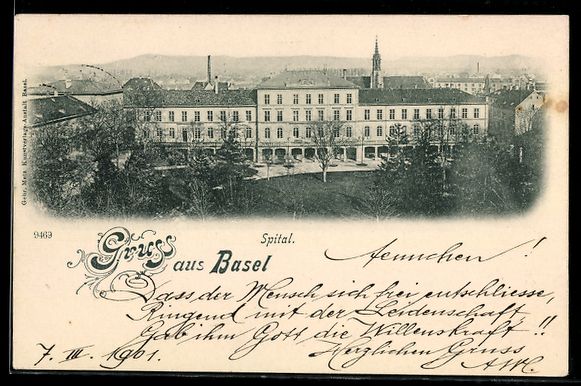 Gebr. Metz Kunstverlags-Anstalt Basel.
9469
Spital.
Gruss aus Basel
Aennchen!
Dass der Mensch sich frei entschliesse,
Ringend mit der Leidenschaft,
Gab ihm Gott die Willenskraft!!
7. III. 1901.
Herzlichen Gruss